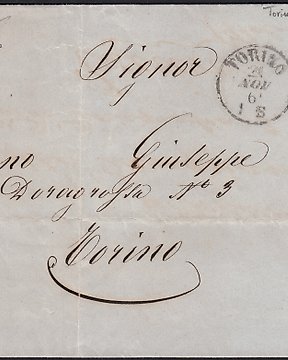 Torino
Signor
TORINO
21
NOV
6
1 S
no Giuseppe
Doragrossa N° 3
Torino